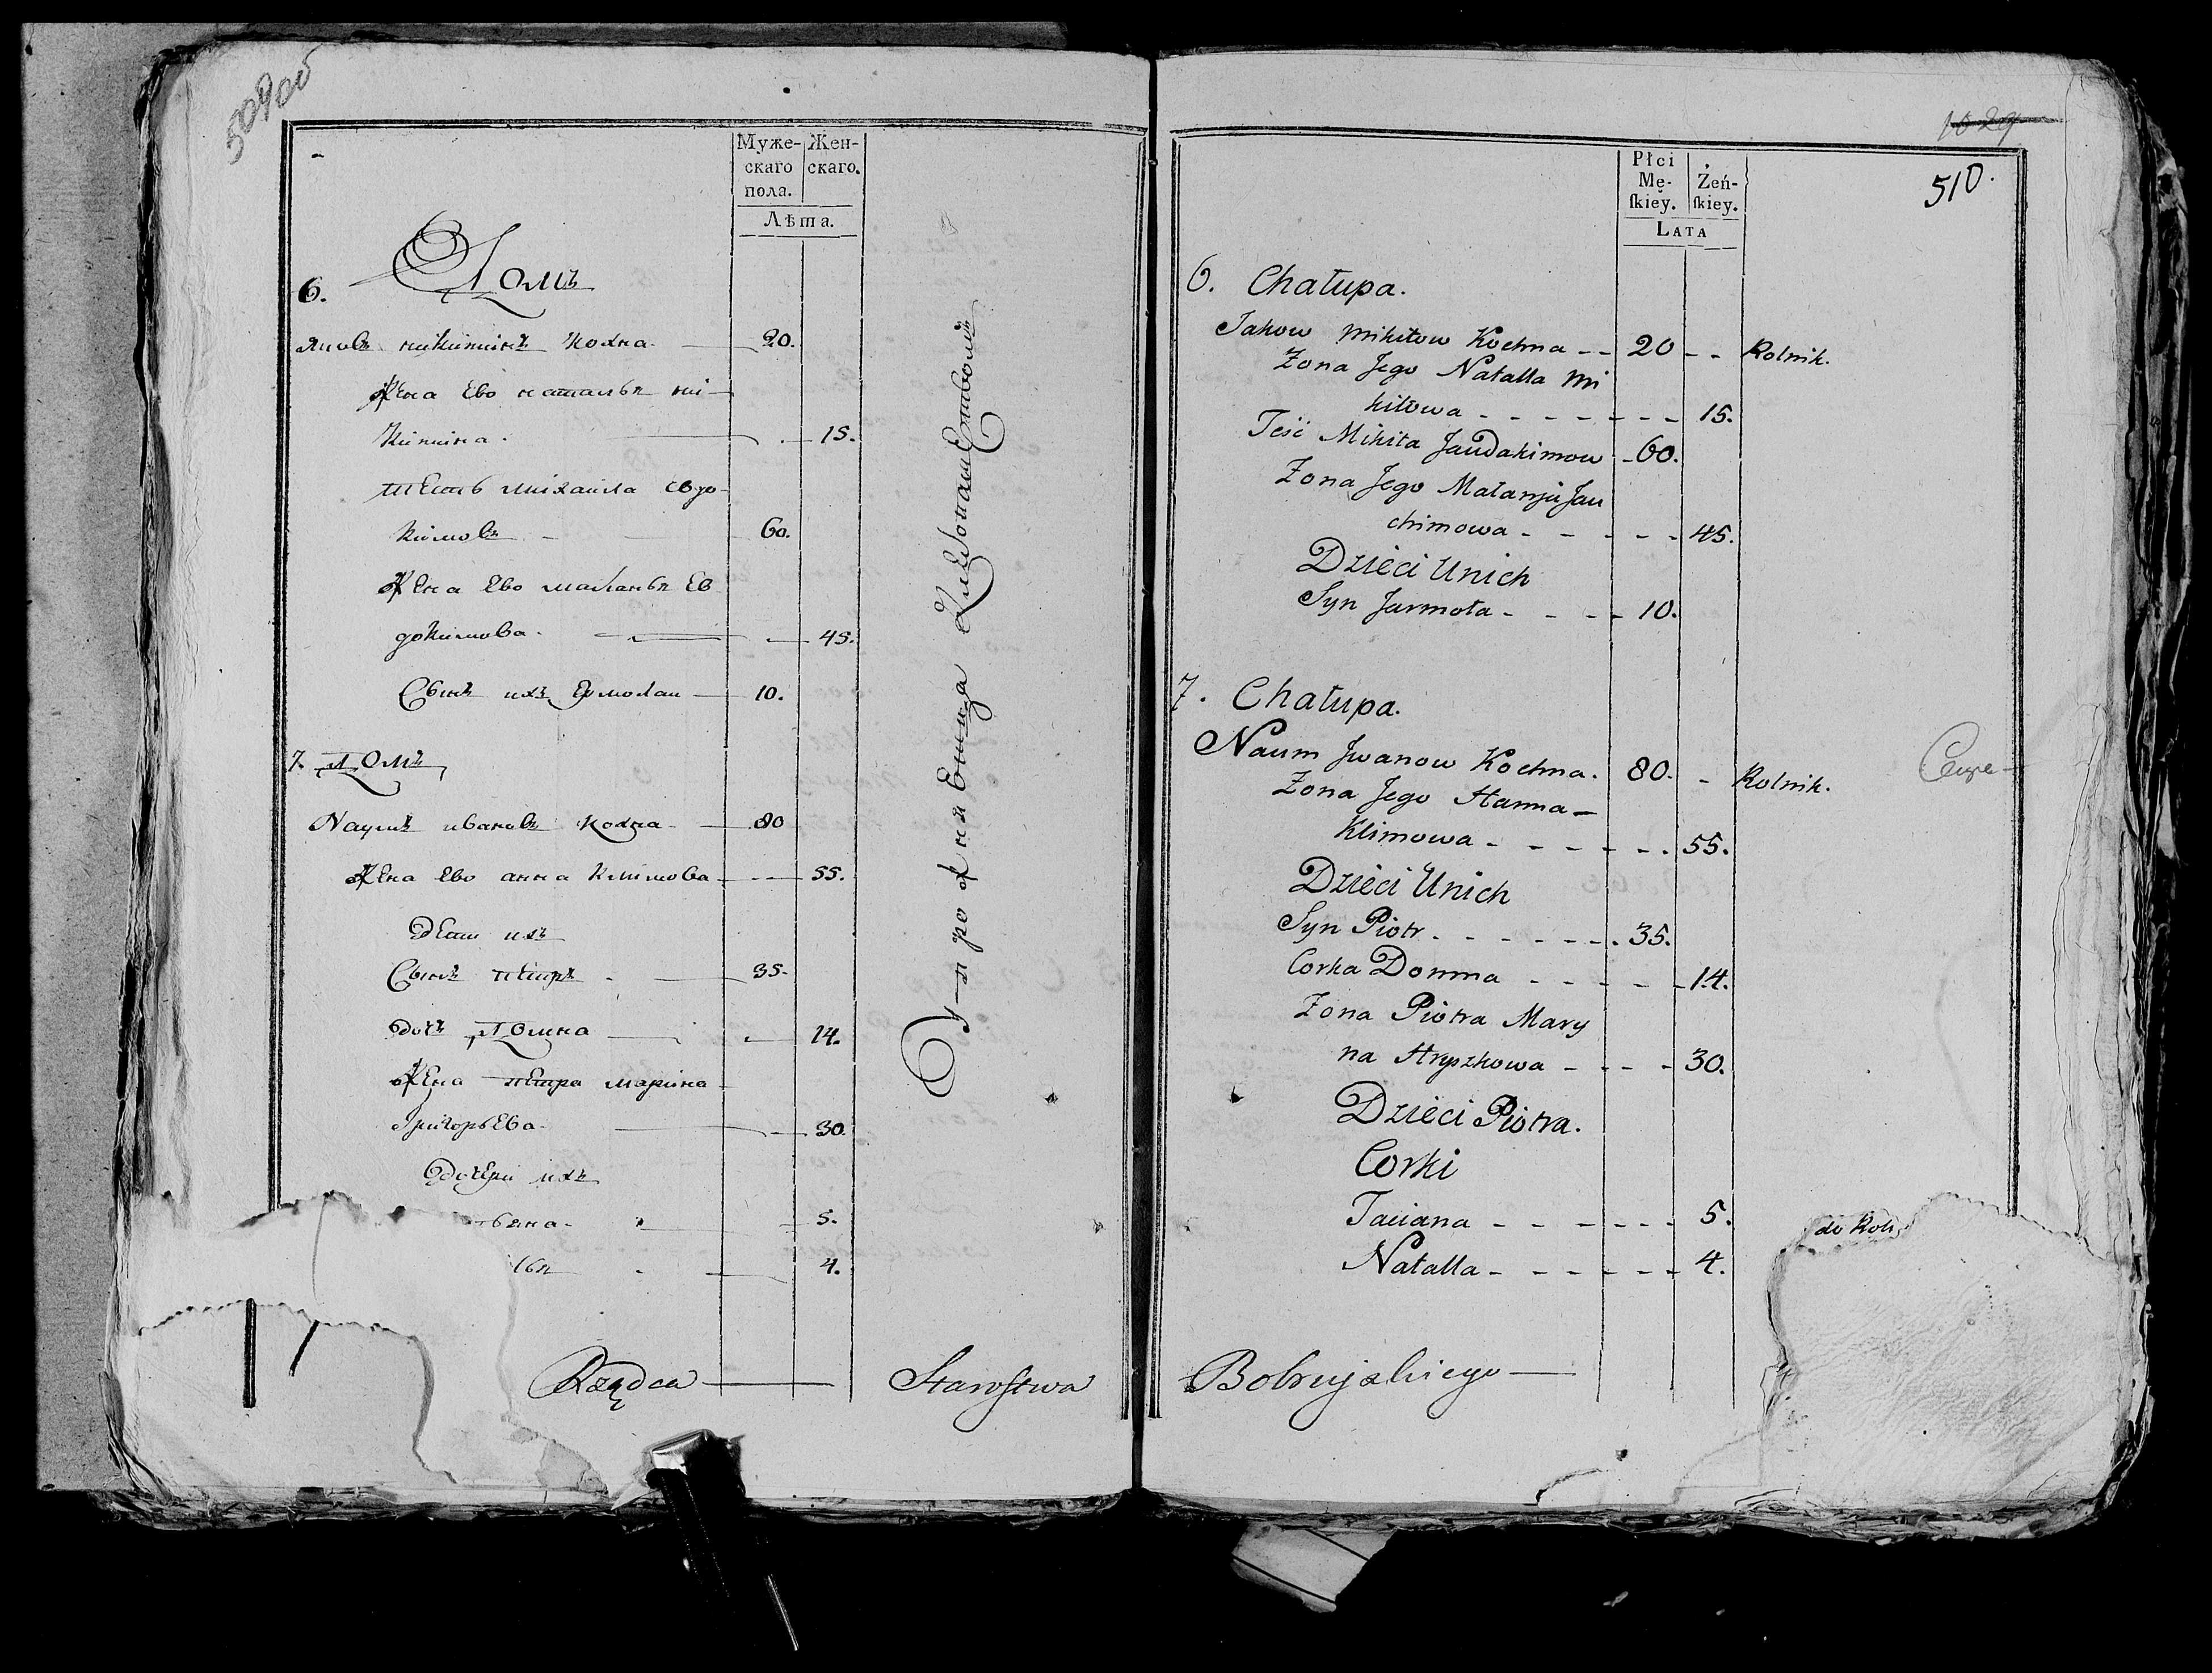 509 об
Муже-
скаго
пола.
Жен-
скаго.
Лѣта.
6. Домъ
Яковъ никитинъ кохна 20.
Жена ево наталья ни-
китина. 15.
тесть михаила евдо-
кимовъ 60.
Жена ево маланья Ев
докимова. 45.
Сынъ ихъ Ермолаи 10.
7. Домъ
Наумъ ивановъ кохна 80
Жена ево анна климова 55.
дети ихъ
Сынъ петръ 35.
дочь Домна 14.
Жена петра марина
Григорьева. 30.
дочери ихъ
5.
4.
Rządca Starostwa
1029
510.
Płci
Mę-
ſkiey.
Żeń-
ſkiey.
LATA
6. Chałupa.
Jakow Mikitow Kochna -- 20 -- Rolnik.
Zona Jego Natalla Mi
kitowa - - - - - - - 15.
Teść Mikita Jaudakimow - 60.
Zona Jego Małanja Jau
chimowa - - - - - 45.
Dzieci Unich
Syn Jarmoła - - - - 10.
7. Chałupa.
Naum Jwanow Kochna. 80. - Rolnik.
Zona Jego Hanna -
Klimowa - - - - - - 55.
Dzieci Unich
Syn Piotr - - - - - - 35.
Corka Domna - - - - - 14.
Zona Piotra Mary
na Hryszkowa - - - - 30.
Dzieci Piotra.
Corki
Taciana - - - - - - 5.
Natalla - - - - - - 4.
Bobruyskiego